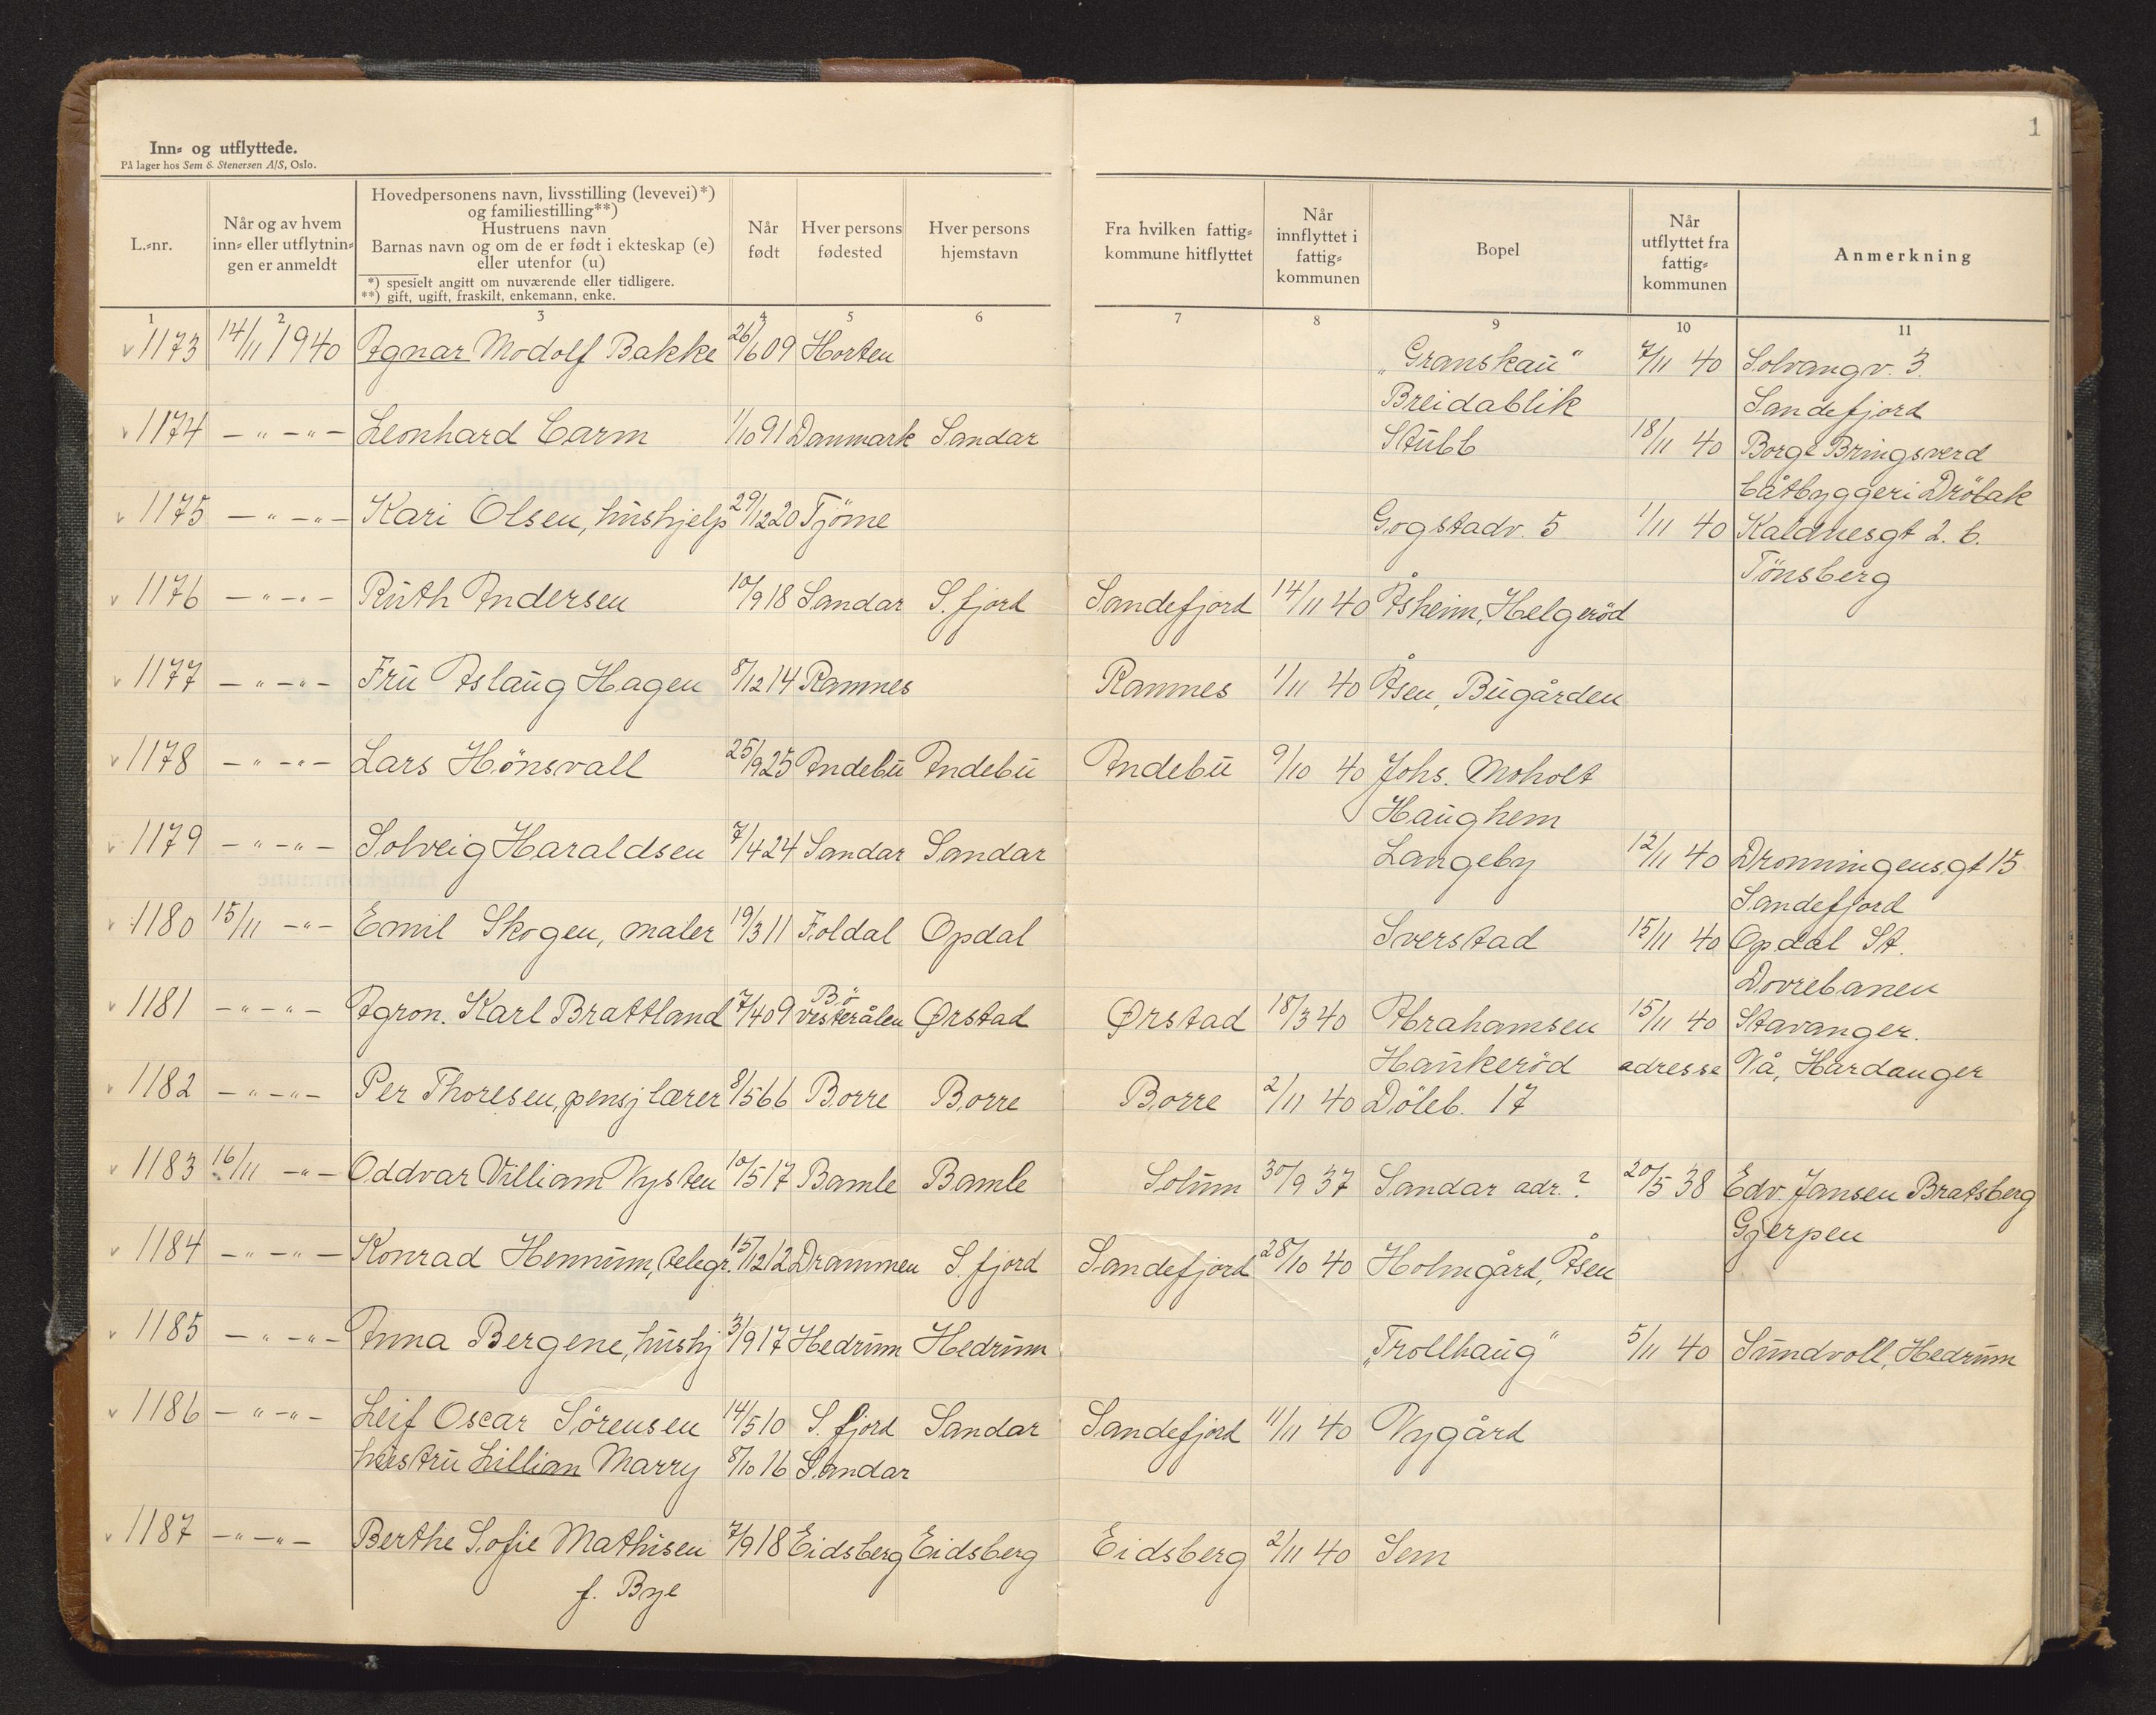 1
Inn- og utflyttede.
På lager hos Sem & Stenersen A/S, Oslo.
L.-nr. | Når og av hvem inn- eller utflytnin-gen er anmeldt | Hovedpersonens navn, livsstilling (levevei)*) og familiestilling**) Hustruens navn Barnas navn og om de er født i ekteskap (e) eller utenfor (u) *) spesielt angitt om nuværende eller tidligere. **) gift, ugift, fraskilt, enkemann, enke. | Når født | Hver persons fødested | Hver persons hjemstavn | Fra hvilken fattig-kommune hitflyttet | Når innflyttet i fattig-kommunen | Bopel | Når utflyttet fra fattig-kommunen | Anmerkning
1 2 3 4 5 6 7 8 9 10 11
v 1173 14/11 1940 Agnar Modolf Bakke 26/6 09 Horten „Granskau“ 7/11 40 Solvangv. 3.
Breidablik Sandefjord
v 1174 – „ – „ – Leonhard Carm 1/10 91 Danmark Sandar Stubb 18/11 40 Borge Bringsverd
båtbyggeri Dröbak
v 1175 – „ – „ – Kari Olsen, hushjelp 29/12 20 Tjöme Gogstadv. 5 1/11 40 Kaldnesgt 2. b.
Tönsberg
v 1176 – „ – „ – Ruth Andersen 10/9 18 Sandar S.fjord Sandefjord 14/11 40 Åsheim, Helgeröd
v 1177 – „ – „ – Fru Aslaug Hagen 8/12 14 Ramnes Ramnes 1/11 40 Åsen, Bugården
v 1178 – „ – „ – Lars Hönsvall 25/9 25 Andebu Andebu Andebu 9/10 40 Johs. Moholt
Haughem
v 1179 – „ – „ – Solveig Haraldsen 7/4 24 Sandar Sandar Langeby 12/11 40 Dronningensgt 15
Sandefjord
v 1180 15/11 – „ – Emil Skogen, maler 19/3 11 Foldal Opdal Sverstad 15/11 40 Opdal St.
Dovrebanen
v 1181 – „ – „ – Agron. Karl Brattland 7/4 09 Bö Vesterålen Ørstad Ørstad 18/3 40 Abrahamsen 15/11 40 Stavanger.
Haukeröd adresse Nå, Hardanger
v 1182 – „ – „ – Per Thoresen, pensj lærer 8/5 66 Borre Borre Borre 2/11 40 Döleb. 17
v 1183 16/11 – „ – Oddvar Villiam Nysten 10/5 17 Bamle Bamle Solum 30/9 37 Sandar adr.? 20/5 38 Edv. Jansen Bratsberg
Gjerpen
v 1184 – „ – „ – Konrad Hennum, telegr. 15/12 12 Drammen S.fjord Sandefjord 28/10 40 Holmgård, Åsen
v 1185 – „ – „ – Anna Bergene, hushj 3/9 17 Hedrum Hedrum „Trollhaug“ 5/11 40 Sundvoll, Hedrum
v 1186 – „ – „ – Leif Oscar Sörensen 14/5 10 S.fjord Sandar Sandefjord 11/11 40 Nygård
hustru Lillian Marry 8/10 16 Sandar
v 1187 – „ – „ – Berthe Sofie Mathisen 7/9 18 Eidsberg Eidsberg Eidsberg 2/11 40 Sem
f. Bye